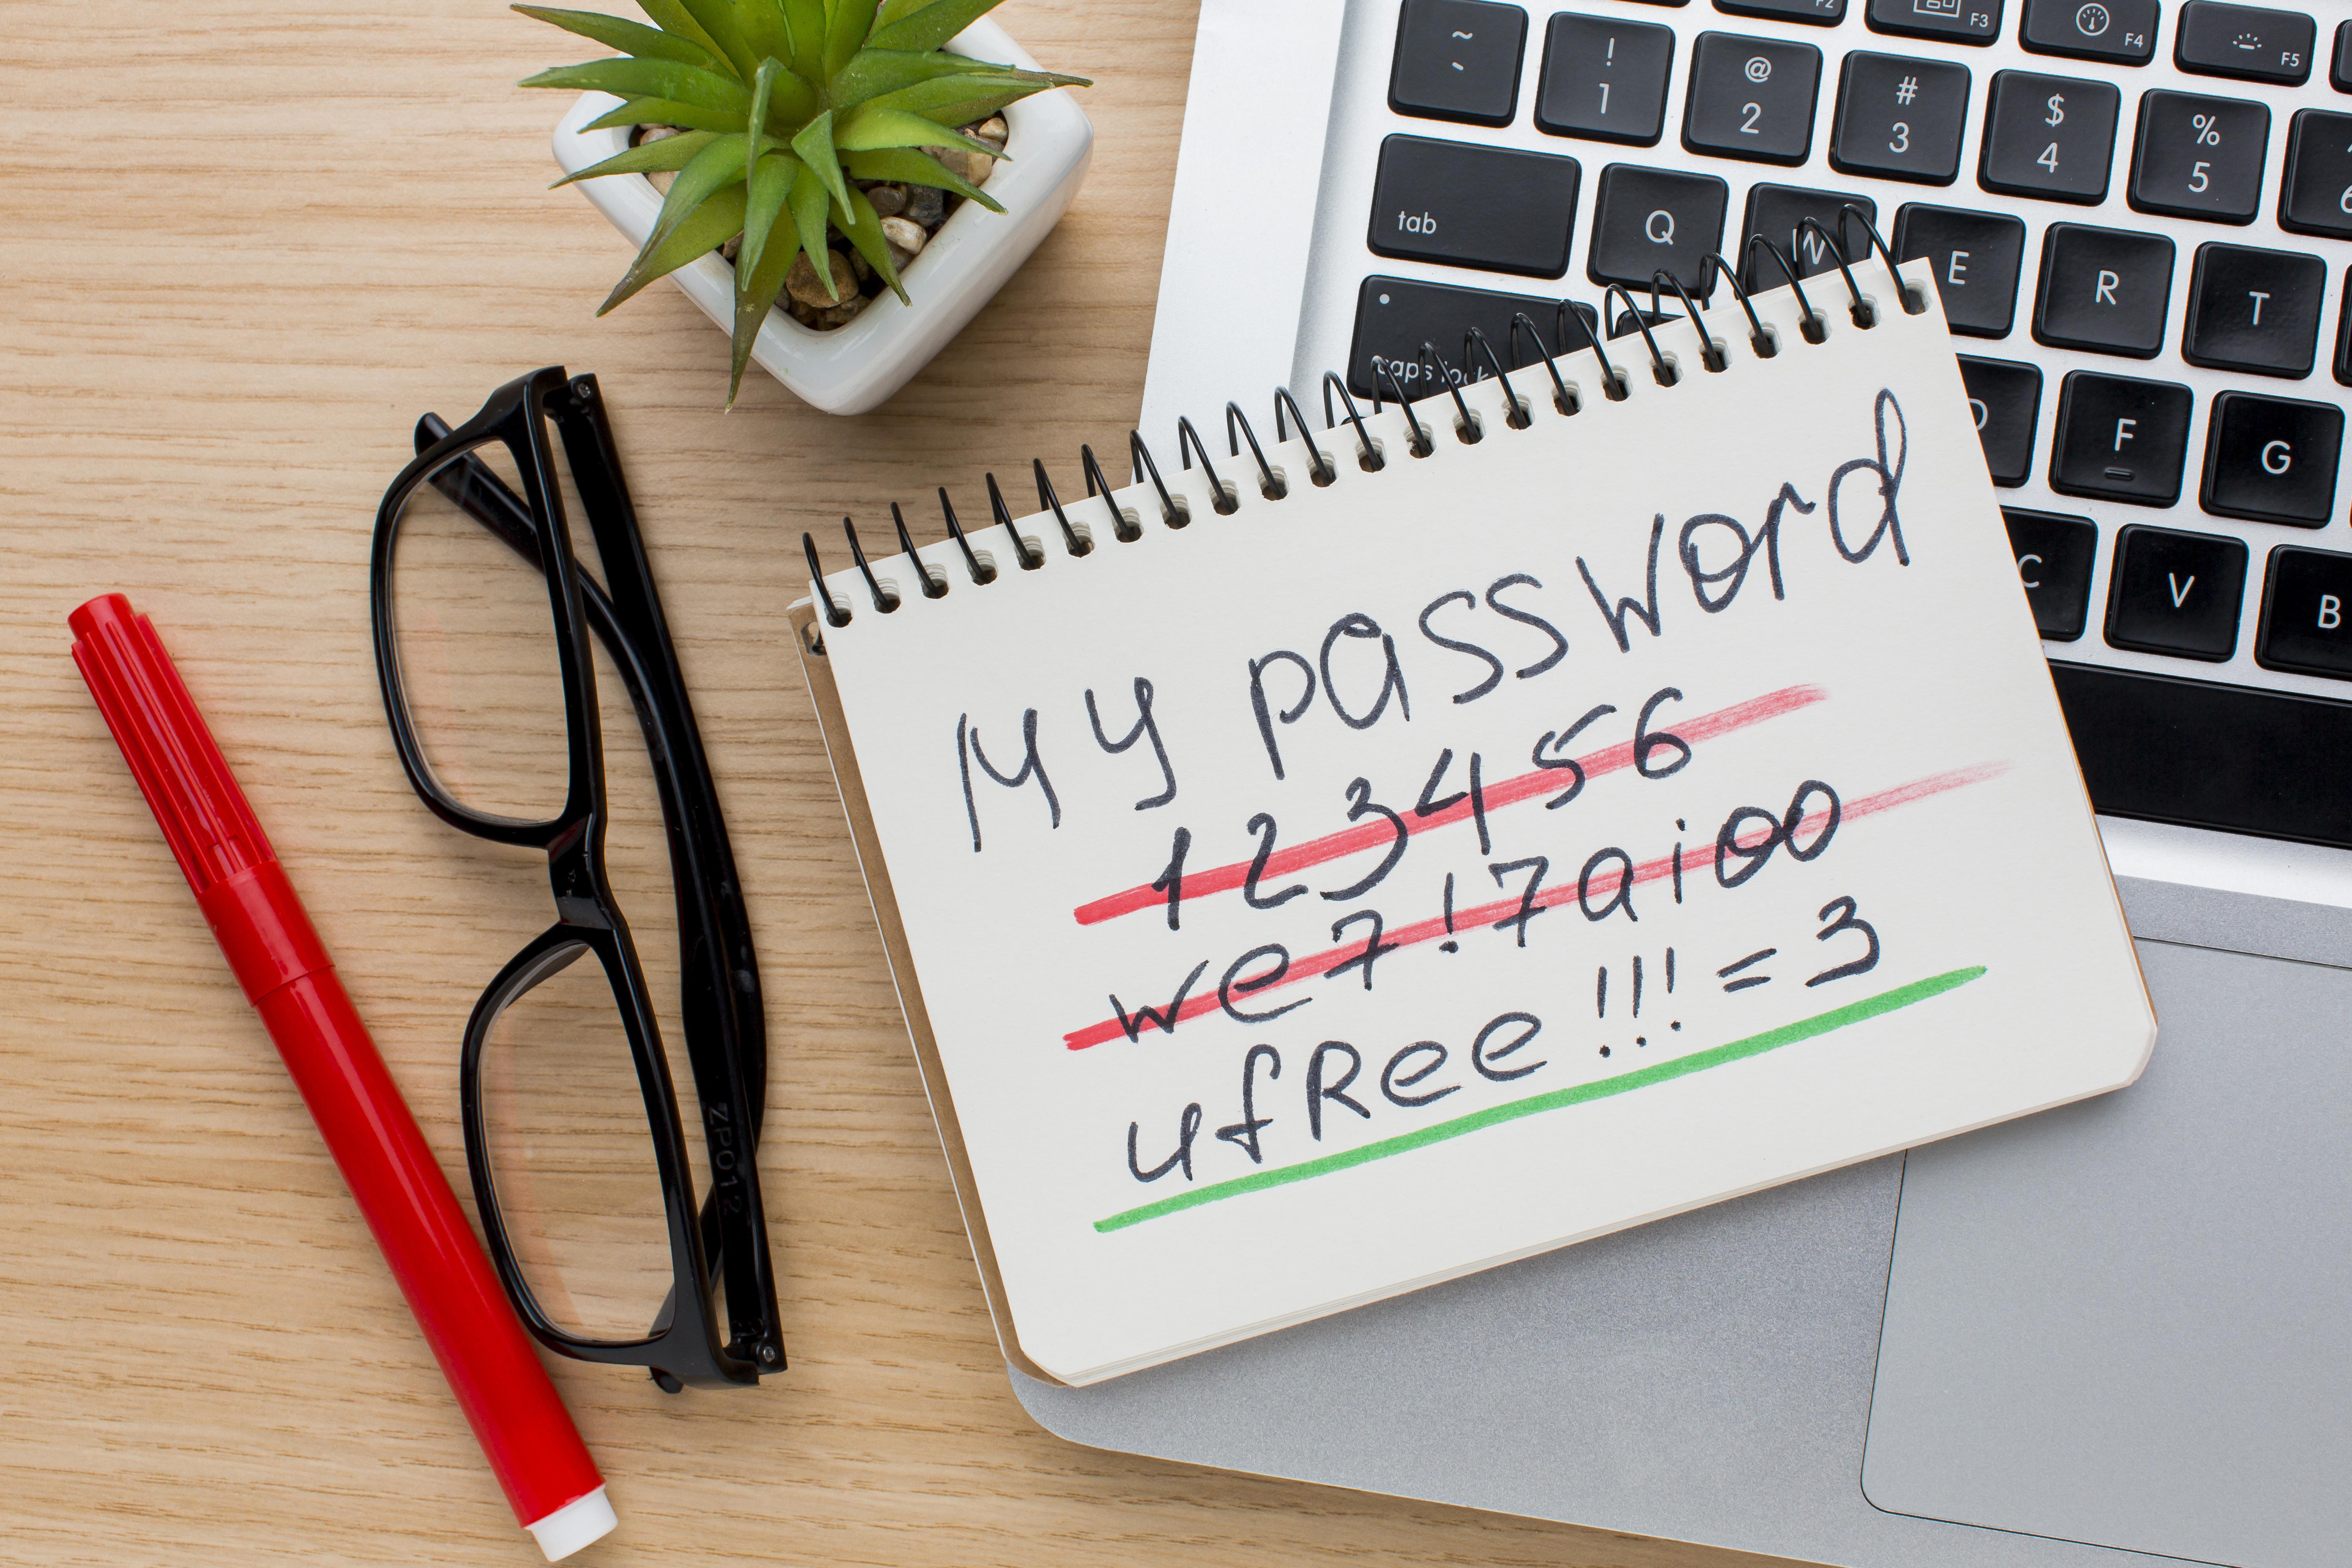 ~
`
!
1
@
2
#
3
$
4
%
5
F2
F3
F4
F5
tab
Q
W
E
R
T
caps lock
D
F
G
C
V
B
My password
123456
we7!7aioo
ufRee!!!=3
ZP012